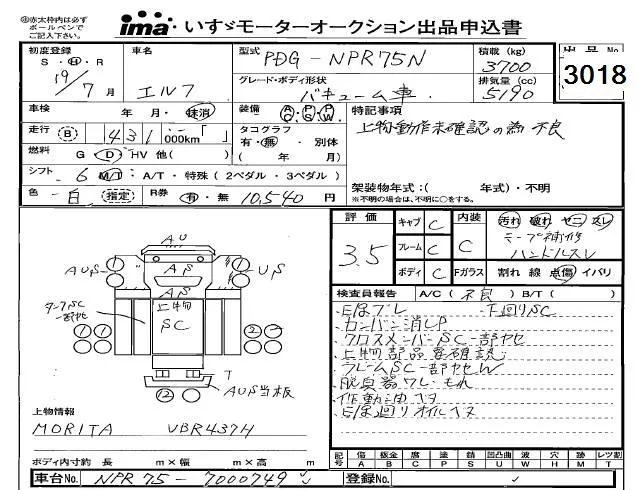 ◎赤太枠内は必ず
ボールペンで
ご記入下さい。
ima いすゞモーターオークション出品申込書
初度登録
S・H・R
19/7月
車名
エルフ
型式
PDG-NPR75N
グレード・ボディ形状
バキューム車
積載 (kg)
3700
排気量 (cc)
5190
出品No
3018
車検 年・月・抹消
装備 AC PS PW
特記事項
上物動作未確認の為不良
走行 B 431,000km「 」
タコグラフ
有・無・別体
( 年 月)
燃料 G D HV 他( )
シフト 6 M/T・A/T・特殊(2ペダル・3ペダル)
架装物年式:( 年式)・不明
※不明の場合は、不明に○をする。
色 白 (指定) R券 有・無 10,540 円
評価
3.5
キャブ C
フレーム C
ボディ C
内装
C
Fガラス
汚れ 破れ ヤニ スレ
テープ補修
ハンドルスレ
割れ 線 点傷 イバリ
検査員報告 A/C(不良)B/T( )
下回りSC
カンバン消しP
クロスメンバSC一部ヤセ
上物部品要確認
フレームSC一部ヤセW
作動油モレ
AU
AUS
AS
US
AS
上物
SC
タープSC
一部ヤセ
T
AUS当板
上物情報
MORITA VBR437H
ボディ内寸約 長 m×幅 m×高 m
記号
傷 A
鈑金 B
腐 C
塗 P
錆 S
凹凸曲 U
波 W
穴 H
跡 M
レツ割 T
車台No. NPR75-7000749
登録No.